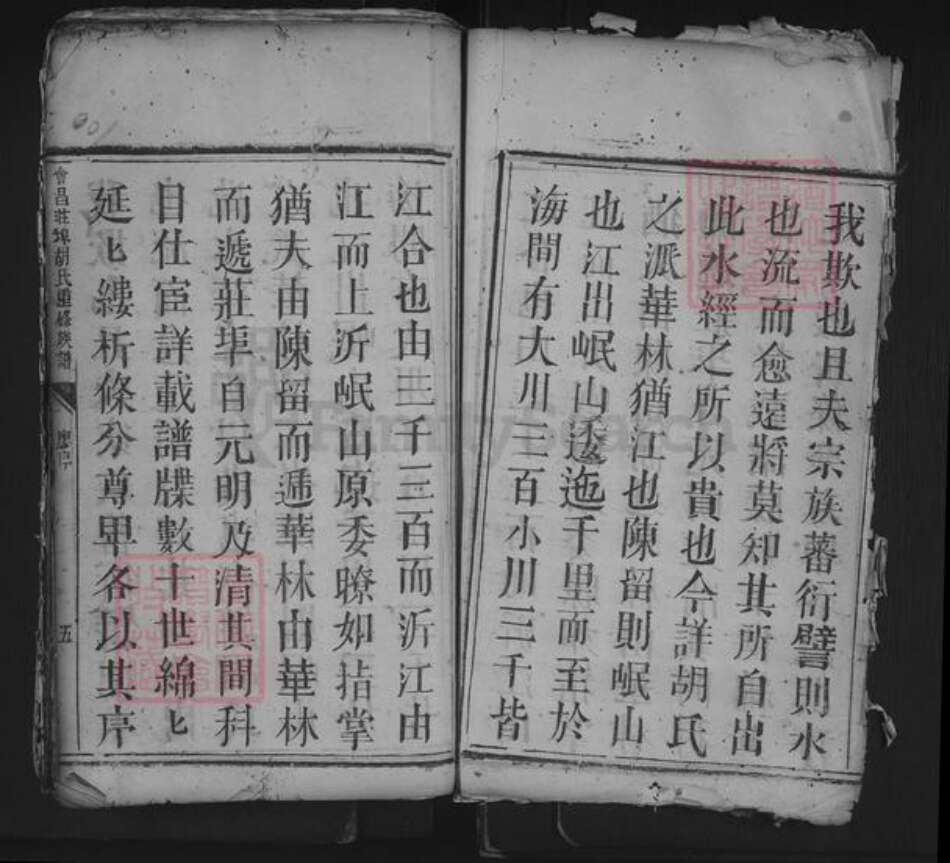 我欺也且夫宗族蕃衍譬則水
也流而愈遠將莫知其所自出
此水經之所以貴也今詳胡氏
之派華林猶江也陳留則岷山
也江出岷山逶迤千里而至於
海間有大川三百小川三千皆
江合也由三千三百而沂江由
江而上沂岷山原委瞭如拮掌
猶夫由陳留而遞華林由華林
而遞莊埠自元明及清其間科
目仕宦詳載譜牒數十世綿匕
延匕縷析條分尊卑各以其序
會昌莊埠胡氏重修族譜
五
FamilySearch